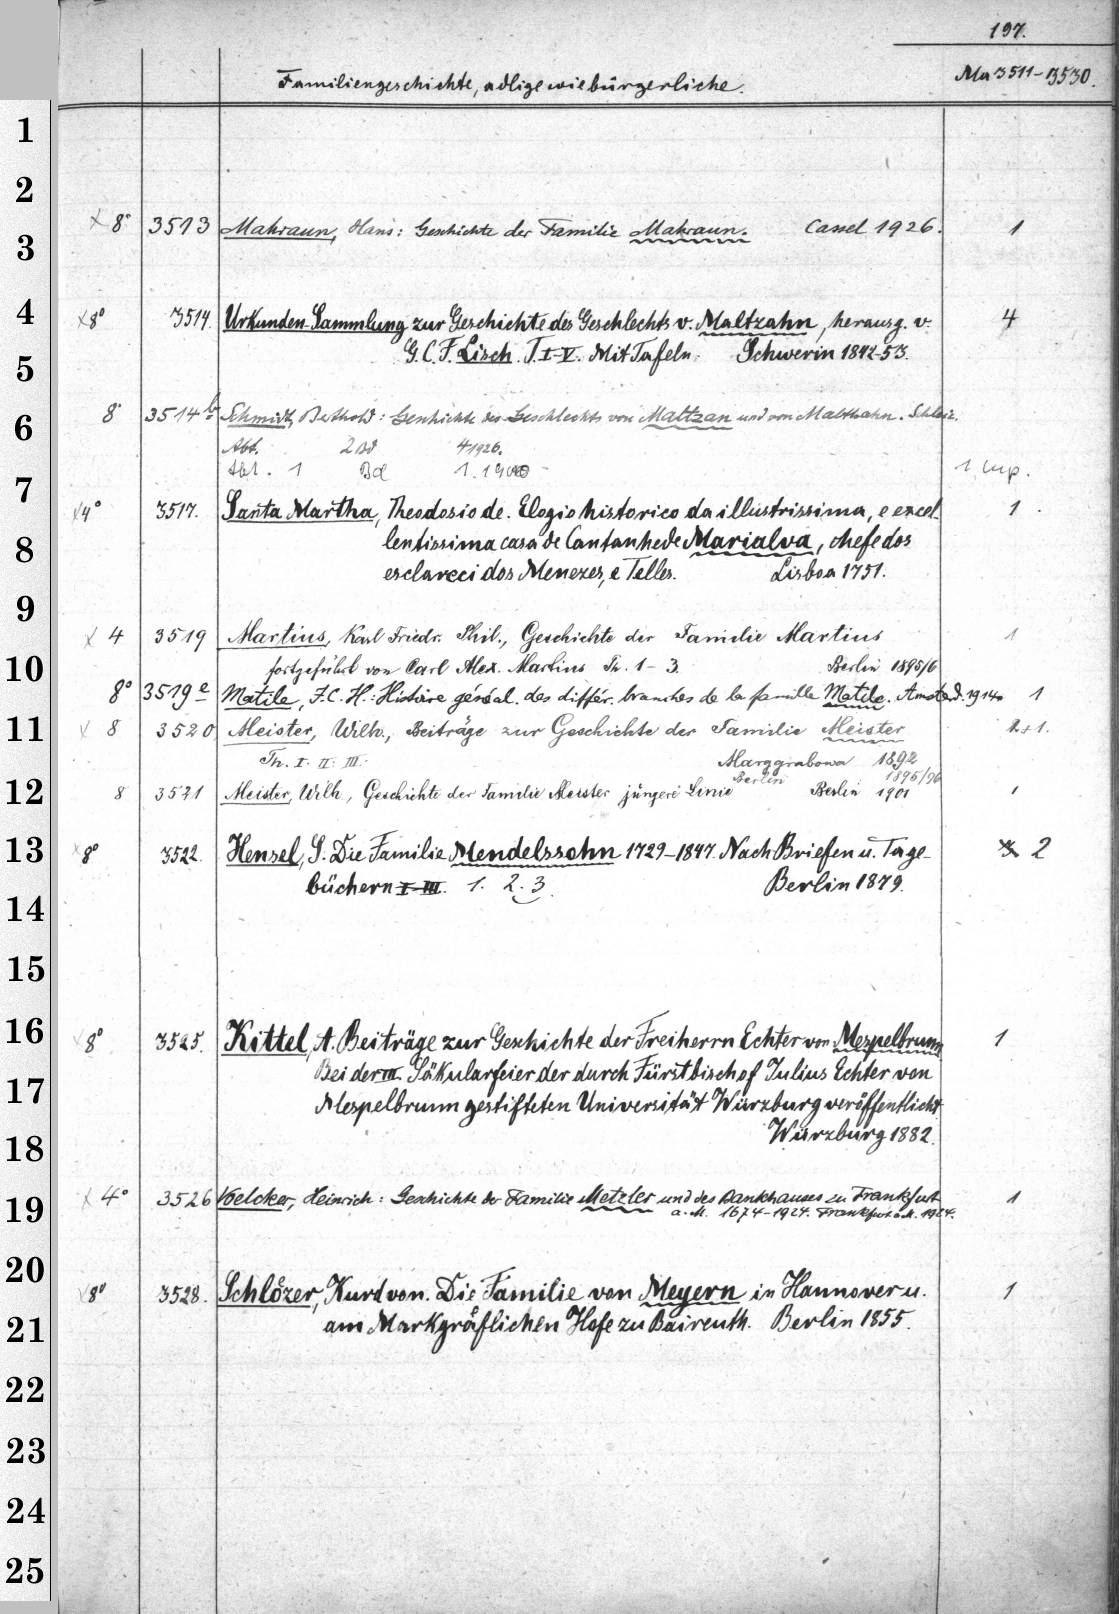 197.
Familiengeschichte, adlige wie bürgerliche.
Ma 3511-3530.
1
2
x 8° 3513 Mahraun, Hans: Geschichte der Familie Mahraun. Cassel 1926. 1
3
4
x 8° 3514. Urkunden-Sammlung zur Geschichte des Geschlechts v. Maltzahn, herausg. v. 4
G. C. F. Lisch. T. I-V. Mit Tafeln. Schwerin 1842-53.
5
8° 3514 b Schmidt, Berthold: Geschichte des Geschlechts von Maltzan und von Maltzahn. Schleiz.
6
Abt. 2 Bd 4 1926.
Abt. 1 Bd 1. 1900 1 imp.
7
x 4° 3517. Santa Martha, Theodosio de. Elogio historico da illustrissima, e excel- 1
lentissima casa de Cantanhede Marialva, chefe dos
8
esclareci dos Menezes, e Telles. Lisboa 1751.
9
x 4 3519 Martius, Karl Friedr. Phil., Geschichte der Familie Martius 1
10
fortgeführt von Carl Alex. Martius Th. 1-3. Berlin 1895/6
8° 3519 e Matile, F. C. H.: Histoire généal. des différ. branches de la famille Matile. Amsted. 1914 1
11
x 8 3520 Meister, Wilh., Beiträge zur Geschichte der Familie Meister 2+1.
Th. I. II. III. Marggrabowa 1892
Berlin 1895/96
12
8 3521 Meister, Wilh., Geschichte der Familie Meister jüngere Linie Berlin 1901 1
13
x 8° 3522. Hensel, S. Die Familie Mendelssohn 1729-1847. Nach Briefen u. Tage- 3 2
büchern I-III. 1. 2. 3. Berlin 1879.
14
15
16
x 8° 3525. Kittel, A. Beiträge zur Geschichte der Freiherrn Echter von Mespelbrunn 1
Bei der III. Säkularfeier der durch Fürstbischof Julius Echter von
17
Mespelbrunn gestifteten Universität Würzburg veröffentlicht.
18
Würzburg 1882.
x 4° 3526 Voelcker, Heinrich: Geschichte der Familie Metzler und des Bankhauses zu Frankfurt 1
19
a. M. 1674-1924. Frankfurt a. M. 1924.
20
x 8° 3528. Schlözer, Kurd von. Die Familie von Meyern in Hannover u. 1
21
am Markgräflichen Hofe zu Baireuth. Berlin 1855.
22
23
24
25